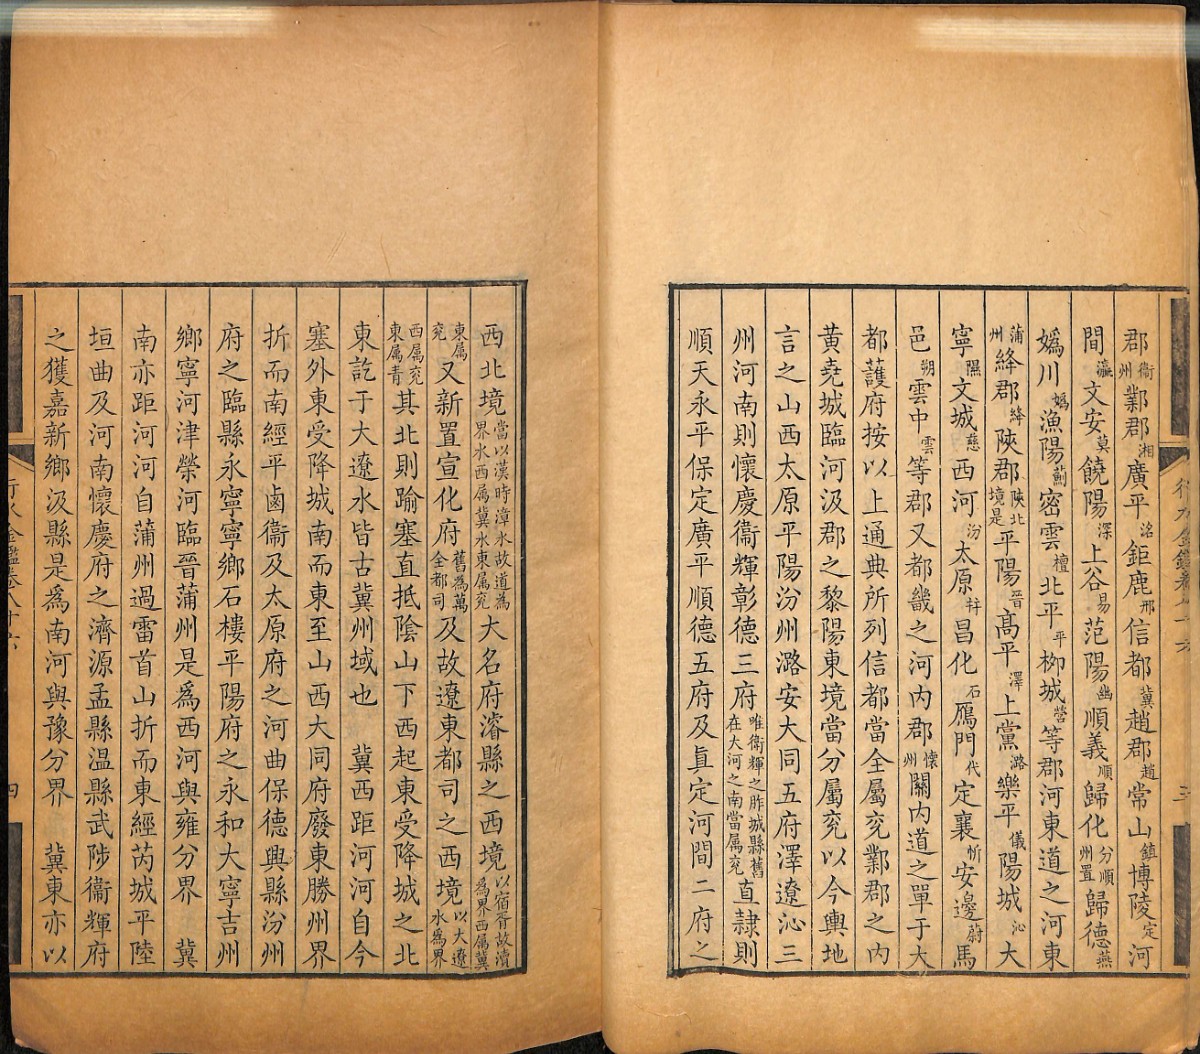 郡衞州鄴郡湘廣平洺鉅鹿邢信都冀趙郡趙常山鎮博陵定河
間瀛文安莫饒陽深上谷易范陽幽順義順歸化分順州置歸德燕
嬀川嬀漁陽薊密雲檀北平平栁城營等郡河東道之河東
蒲州絳郡絳陝郡陝北境是平陽晉高平澤上黨潞樂平儀陽城沁大
寧隰文城慈西河汾太原幷昌化石鴈門代定襄忻安邊蔚馬
邑朔雲中雲等郡又都畿之河內郡懷州關內道之單于大
都護府按以上通典所列信都當全屬兖鄴郡之內
黃堯城臨河汲郡之黎陽東境當分屬兖以今輿地
言之山西太原平陽汾州潞安大同五府澤遼沁三
州河南則懷慶衞輝彰德三府唯衞輝之胙城縣舊在大河之南當属兖直隷則
順天永平保定廣平順德五府及真定河間二府之
西北境當以漢時漳水故道為界水西属冀水東属兖大名府濬縣之西境以宿胥故瀆為界西属冀
東属兖又新置宣化府舊為萬全都司及故遼東都司之西境以大遼水為界
西属兖東属青其北則踰塞直抵陰山下西起東受降城之北
東訖于大遼水皆古冀州域也　冀西距河河自今
塞外東受降城南而東至山西大同府廢東勝州界
折而南經平鹵衞及太原府之河曲保德興縣汾州
府之臨縣永寧寧鄉石樓平陽府之永和大寧吉州
鄉寧河津榮河臨晉蒲州是爲西河與雍分界　冀
南亦距河河自蒲州過雷首山折而東經芮城平陸
垣曲及河南懷慶府之濟源孟縣温縣武陟衞輝府
之獲嘉新鄉汲縣是爲南河與豫分界　冀東亦以
四